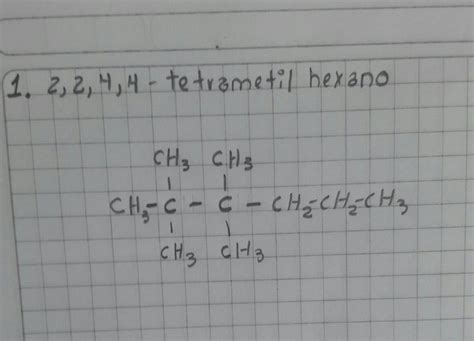 1. 2,2,4,4 - tetrametil hexano
CH3 CH3
CH3 - C - C - CH2 - CH2 - CH3
CH3 CH3